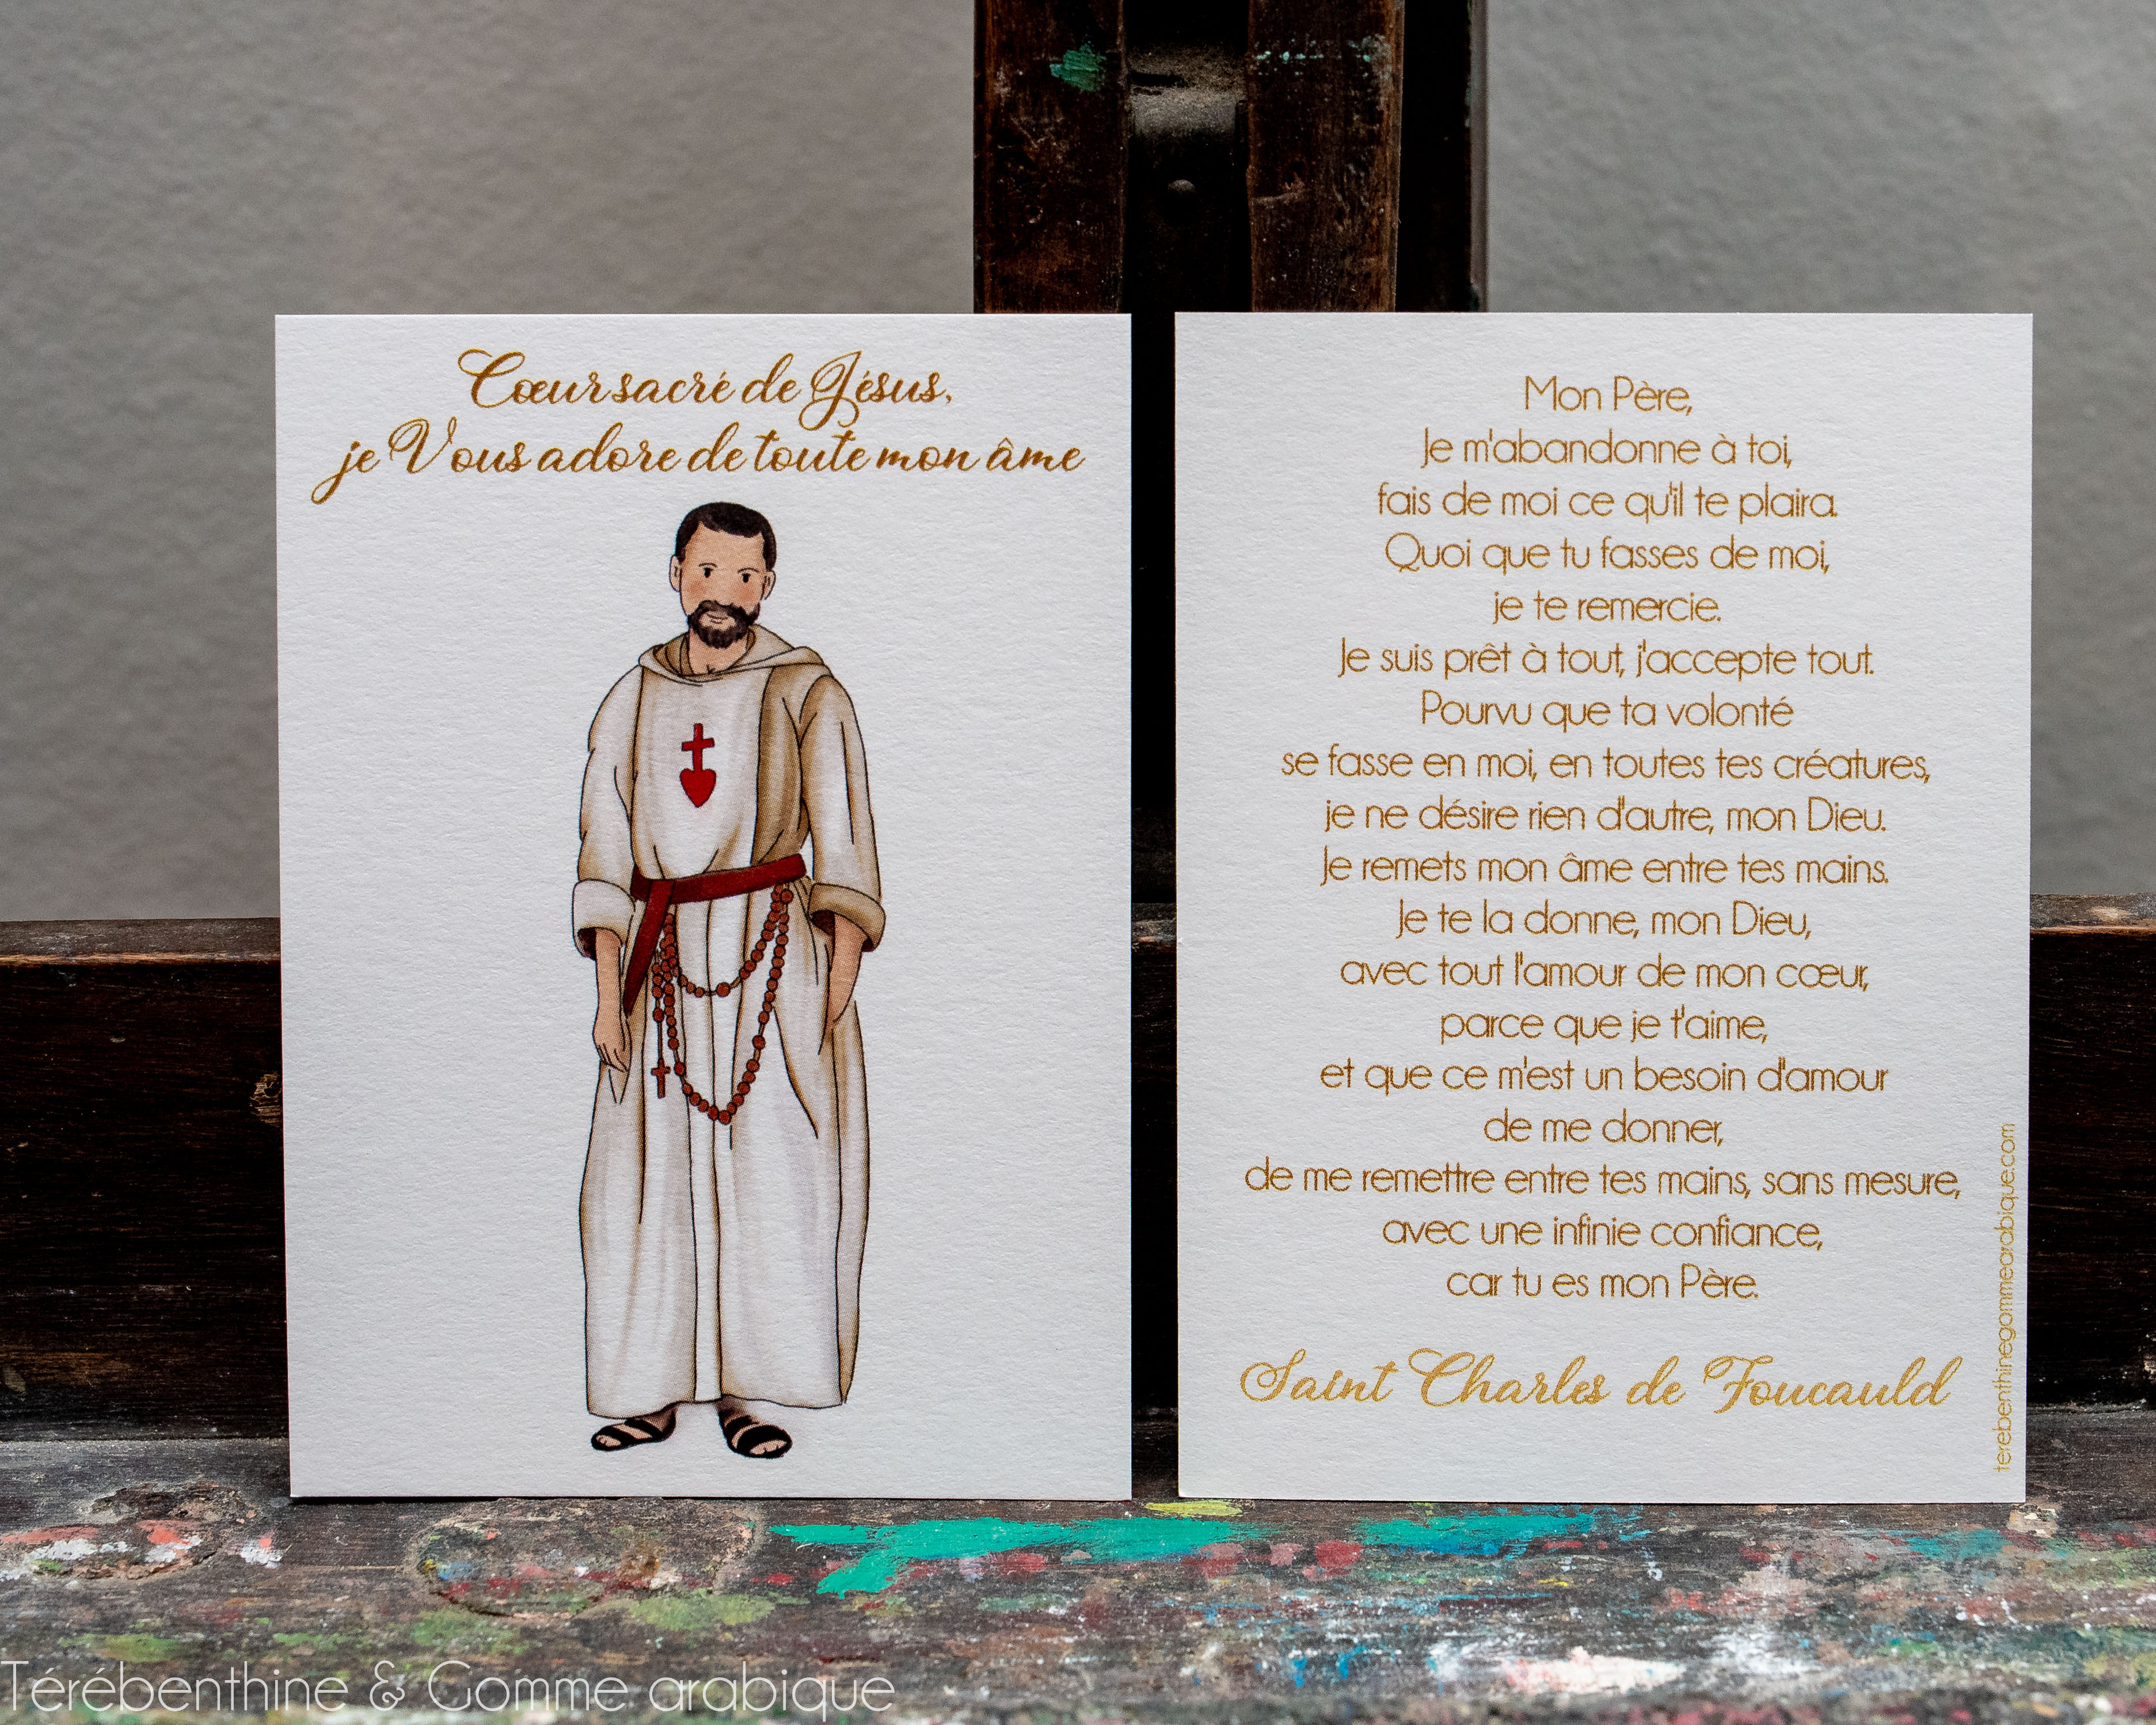 Cœur sacré de Jésus,
je Vous adore de toute mon âme
Mon Père,
Je m'abandonne à toi,
fais de moi ce qu'il te plaira.
Quoi que tu fasses de moi,
je te remercie.
Je suis prêt à tout, j'accepte tout.
Pourvu que ta volonté
se fasse en moi, en toutes tes créatures,
je ne désire rien d'autre, mon Dieu.
Je remets mon âme entre tes mains.
Je te la donne, mon Dieu,
avec tout l'amour de mon cœur,
parce que je t'aime,
et que ce m'est un besoin d'amour
de me donner,
de me remettre entre tes mains, sans mesure,
avec une infinie confiance,
car tu es mon Père.
Saint Charles de Foucauld
terebenthinegommearabique.com
Térébenthine & Gomme arabique